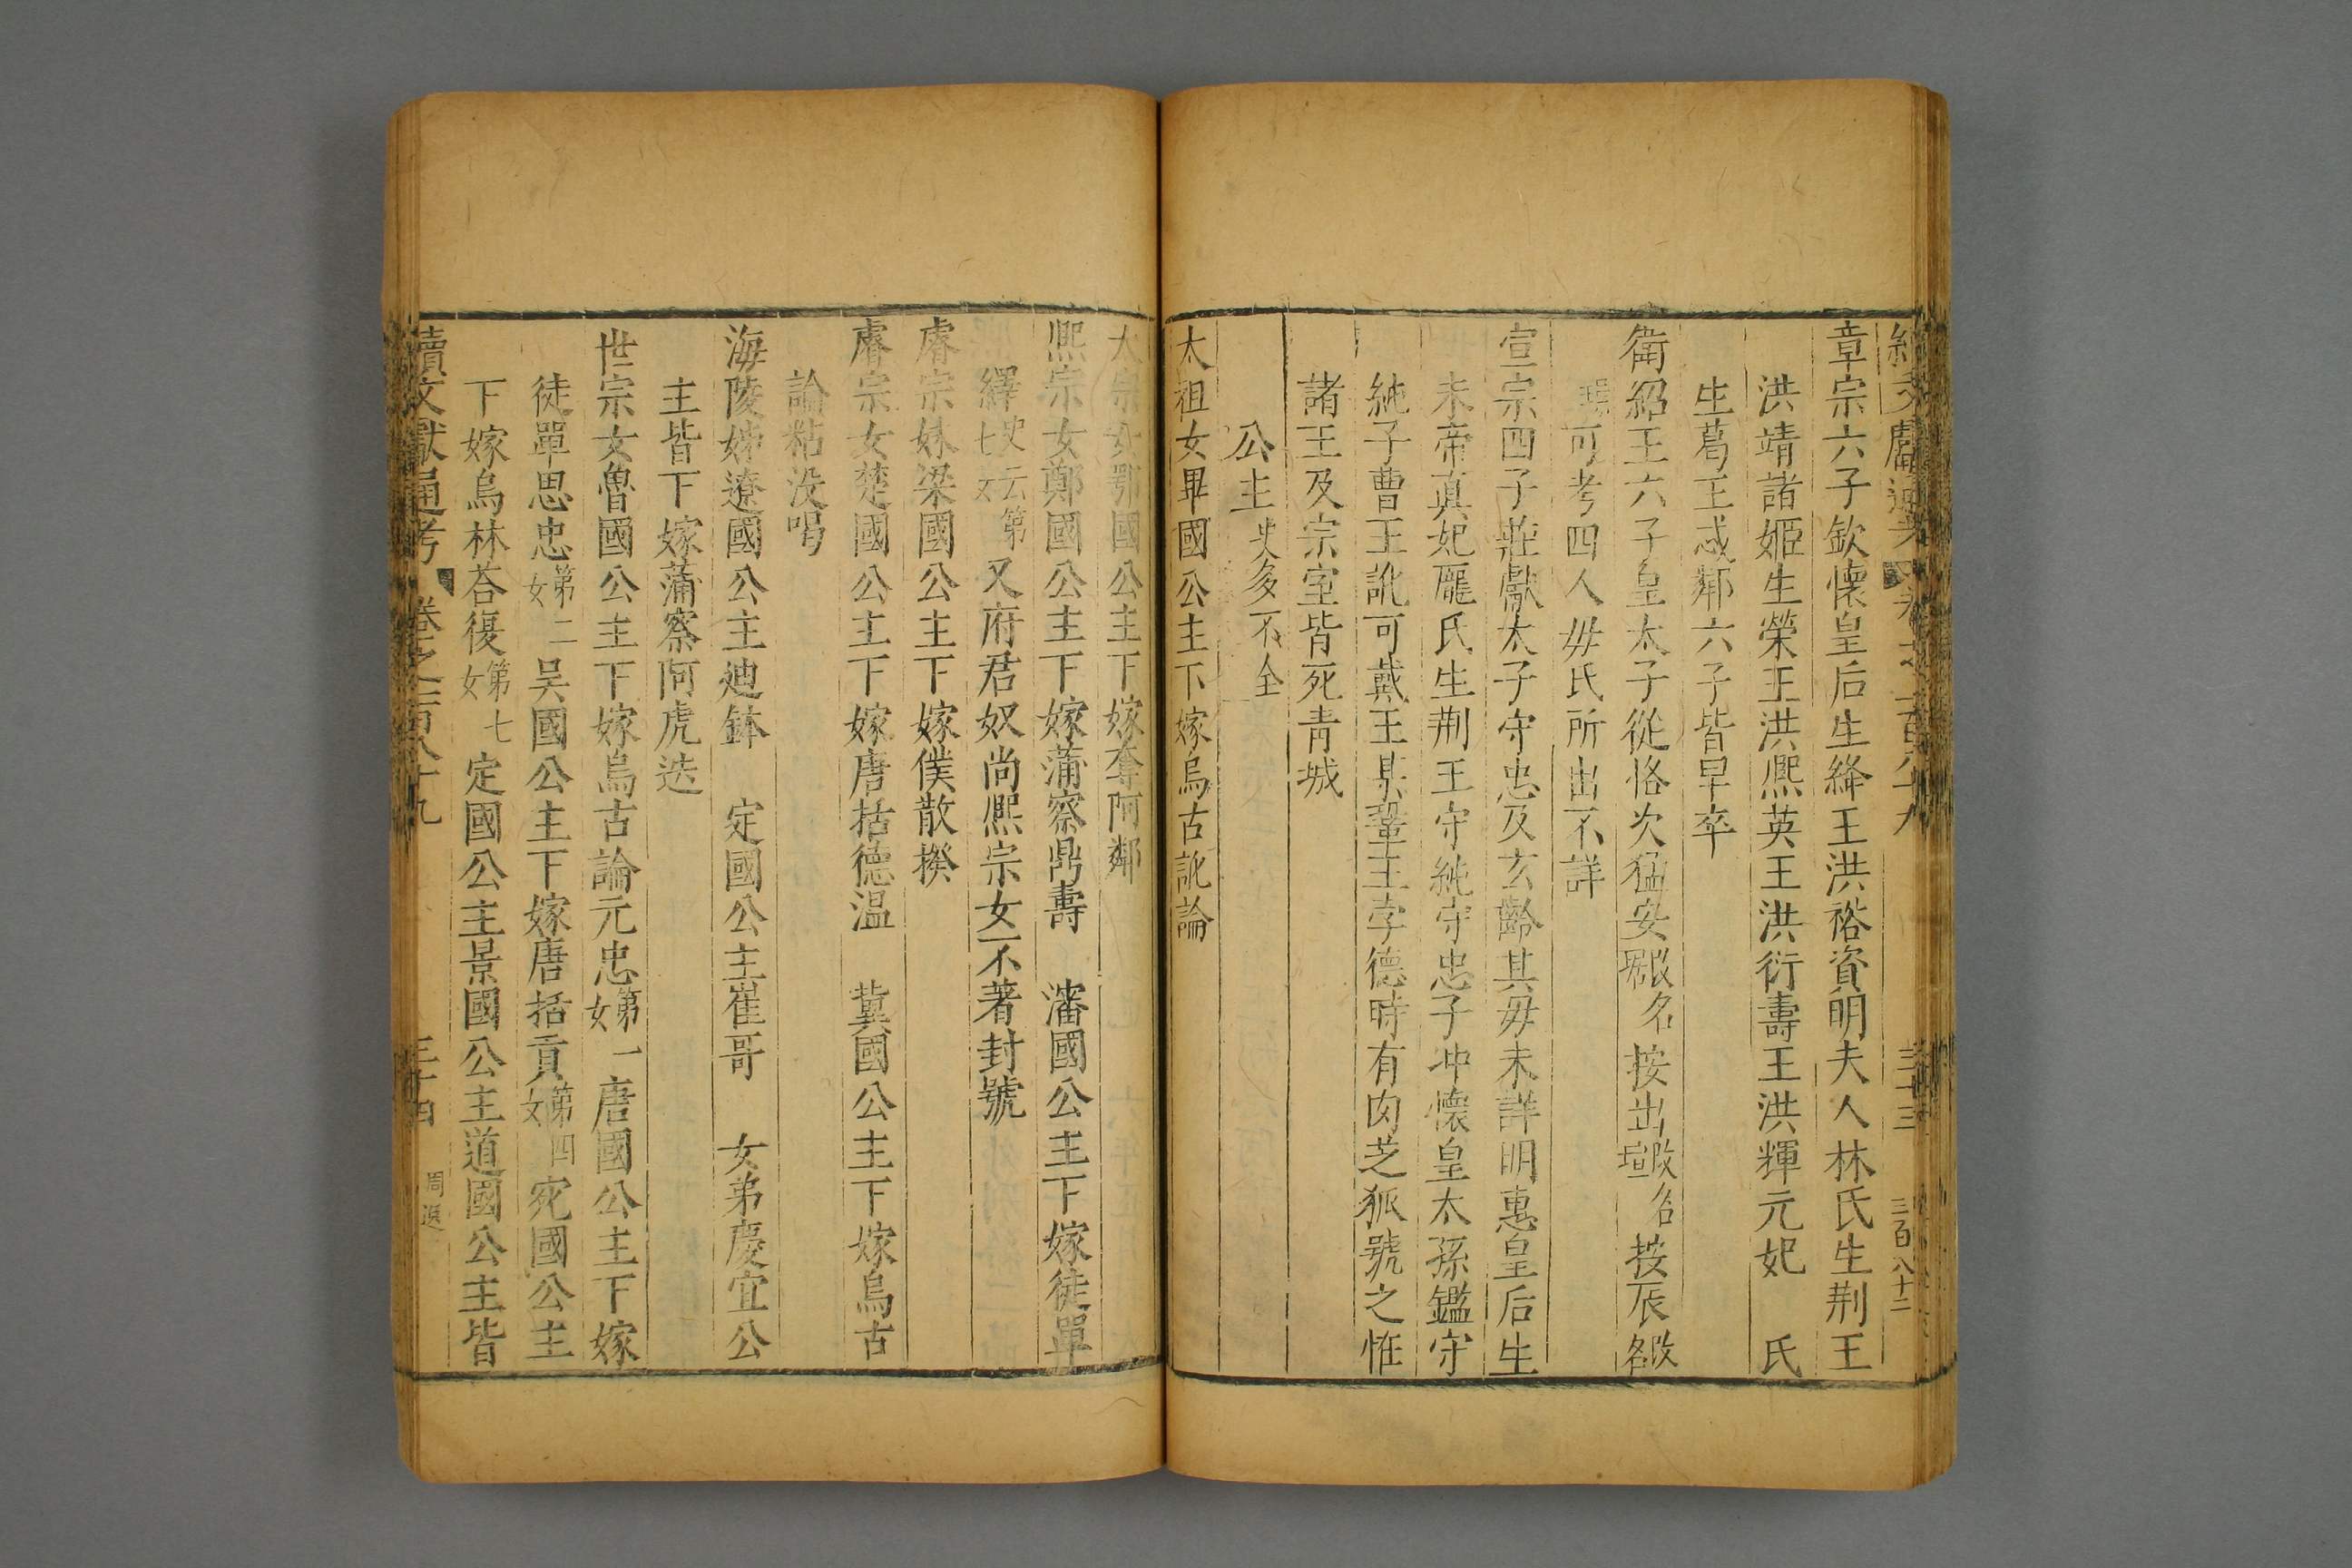 章宗六子欽懷皇后生絳王洪裕資明夫人林氏生荆王
洪靖諸姬生榮王洪熈英王洪衍壽王洪輝元妃 氏
生葛王忒鄰六子皆早卒
衛紹王六子皇太子從恪次猛安琚改名按出瑄改名按辰改名
可考四人毋氏所出不詳
宣宗四子莊獻太子守忠及玄齡其毋未詳明惠皇后生
末帝真妃龎氏生荆王守純守忠子冲懷皇太孫鑑守
純子曹王訛可戴王某鞏王孛德時有肉芝狐號之恠
諸王及宗室皆死青城
公主史多不全
太祖女畢國公主下嫁烏古訛論
太宗女鄂國公主下嫁奪阿鄰
熈宗女鄭國公主下嫁蒲察鼎壽 瀋國公主下嫁徒單
繹史云第七女又府君奴尚熈宗女不著封號
睿宗妹梁國公主下嫁僕散揆
睿宗女楚國公主下嫁唐括德温 冀國公主下嫁烏古
論粘没曷
海陵姊遼國公主廸鉢 定國公主崔哥 女弟慶宜公
主皆下嫁蒲察阿虎迭
世宗女魯國公主下嫁烏古論元忠第一女唐國公主下嫁
徒單思忠第二女吴國公主下嫁唐括貢第四女宛國公主
下嫁烏林荅復第七女定國公主景國公主道國公主皆
續文獻通考 卷之二百八十九 三十四 周